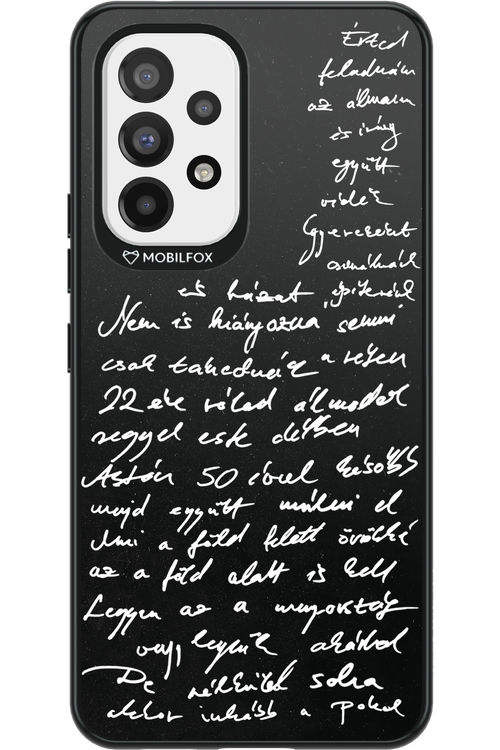 Érted
feladnám
az álmaim
és irány
együtt
vidék
Gyereket
csinálnék
és házat építenék
Nem is hiányozna semmi
csak tehetnék a
22 éve rólad álmodok
reggel este délben
Aztán 50 évvel később
majd együtt múlni el
Ami a föld felett örökké
az a föld alatt is kell
Legyen az a mennyország
vagy legyünk akárhol
De nélküled soha
akkor inkább a pokol
MOBILFOX